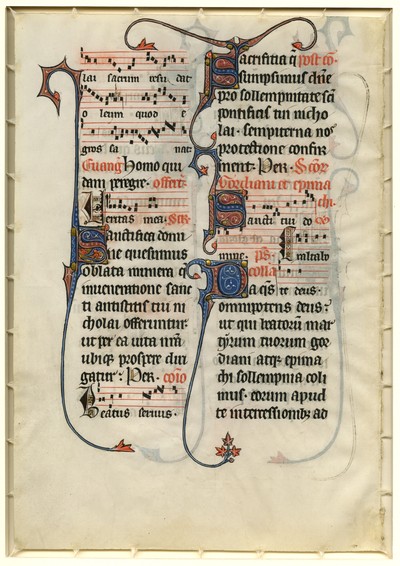 lai sacrum resu dat
o leum quod e
gros sa nat
Euang Homo qui
dam peregre. offert.
Ueritas mea. Scr.
Sanctifica domi
ne quesumus
oblata munera q
in ueneratione sanc
ti antistitis tui ni
cholai offeruntur.
ut per ea uita nra
ubiqz prospere diri
gatur. Per. co
Beatus seruus.
Sacrificia q post co.
sumpsimus dne
pro sollempnitate sci
pontificis tui nicho
lai. sempiterna nos
protectione confir
ment. Per. Scor
Gordiani et epima
chi.
Sancti tui do
mine. ps
colla
Da qs
omnipotens deus.
ut qui beatorum mar
tyrum tuorum gor
diani atqz epima
chi sollempnia coli
mus. eorum apud
te intercessionibz ad